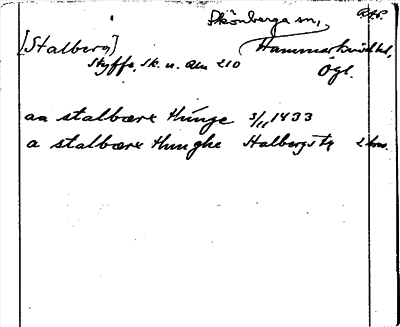 Skönberga sn,
[Stalberg] Hammarkinds hd,
Styffe, Sk. u. Un 210 Ögl.
aa stalbærx Hunge 3/11 1433
a stalbærx Hunghe Stalbergs tg